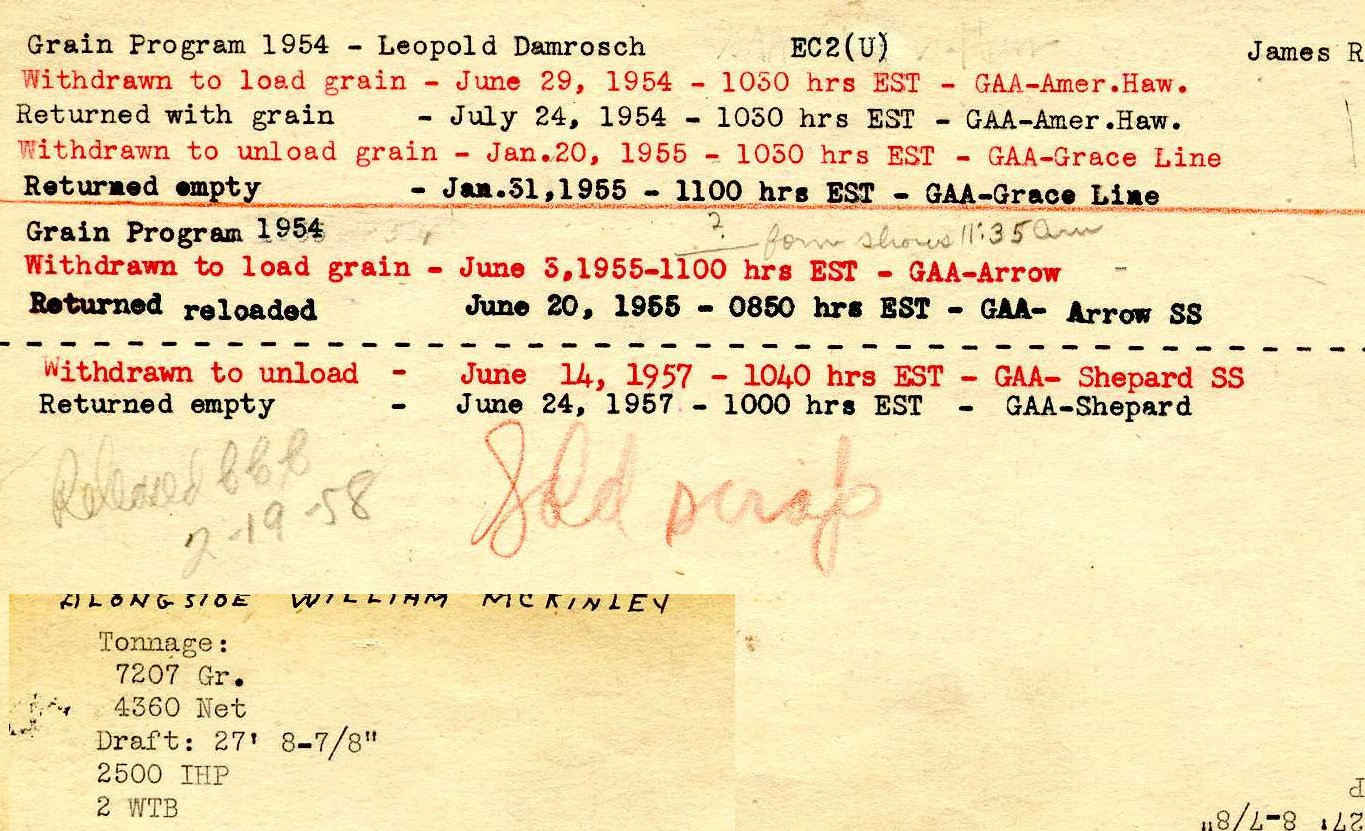 Grain Program 1954 - Leopold Damrosch EC2(U) James R
Withdrawn to load grain - June 29, 1954 - 1030 hrs EST - GAA-Amer.Haw.
Returned with grain - July 24, 1954 - 1030 hrs EST - GAA-Amer.Haw.
Withdrawn to unload grain - Jan.20, 1955 - 1030 hrs EST - GAA-Grace Line
Returned empty - Jan.31,1955 - 1100 hrs EST - GAA-Grace Line
Grain Program 1954
? form shows 11:35 am
Withdrawn to load grain - June 3,1955-1100 hrs EST - GAA-Arrow -
Returned reloaded June 20, 1955 - 0850 hrs EST - GAA- Arrow SS
Withdrawn to unload - June 14, 1957 - 1040 hrs EST - GAA- Shepard SS
Returned empty - June 24, 1957 - 1000 hrs EST - GAA-Shepard
Released CCC
2-19-58
Sold scrap
ALONGSIDE WILLIAM MCKINLEY
Tonnage:
7207 Gr.
4360 Net
Draft: 27' 8-7/8"
2500 IHP
2 WTB
P
27' 8-7/8"